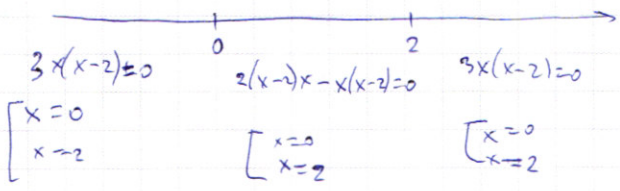 0 2
3x(x-2)=0 2(x-2)x-x(x-2)=0 3x(x-2)=0
[x=0 [x=0 [x=0
x=2 x=2 x=2